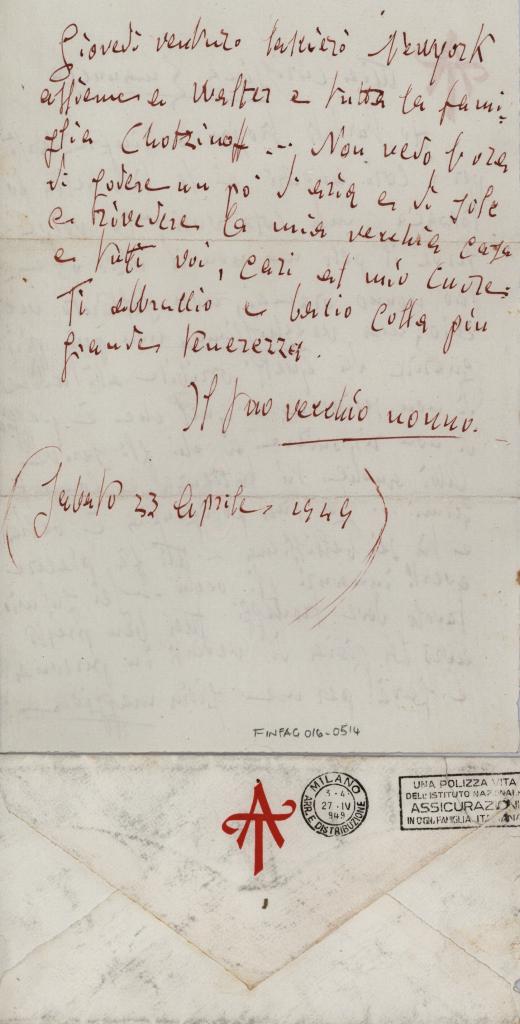 Giovedì venturo lascierò Newyork
assieme a Walter e tutta la fami-
glia Chotzinoff... Non vedo l'ora
di godere un pò d'aria e di sole
e rivedere la mia vecchia casa
e tutti voi, cari al mio cuore.
Ti abbraccio e bacio colla più
grande tenerezza.
Il tuo vecchio nonno.
(Sabato 23 Aprile, 1949)
FINFAG 016-0514
AT
MILANO
3-4
27·IV
949
ARR. E DISTRIBUZIONE
UNA POLIZZA VITA
DELL'ISTITUTO NAZIONALE
ASSICURAZIONI
IN OGNI FAMIGLIA ITALIANA